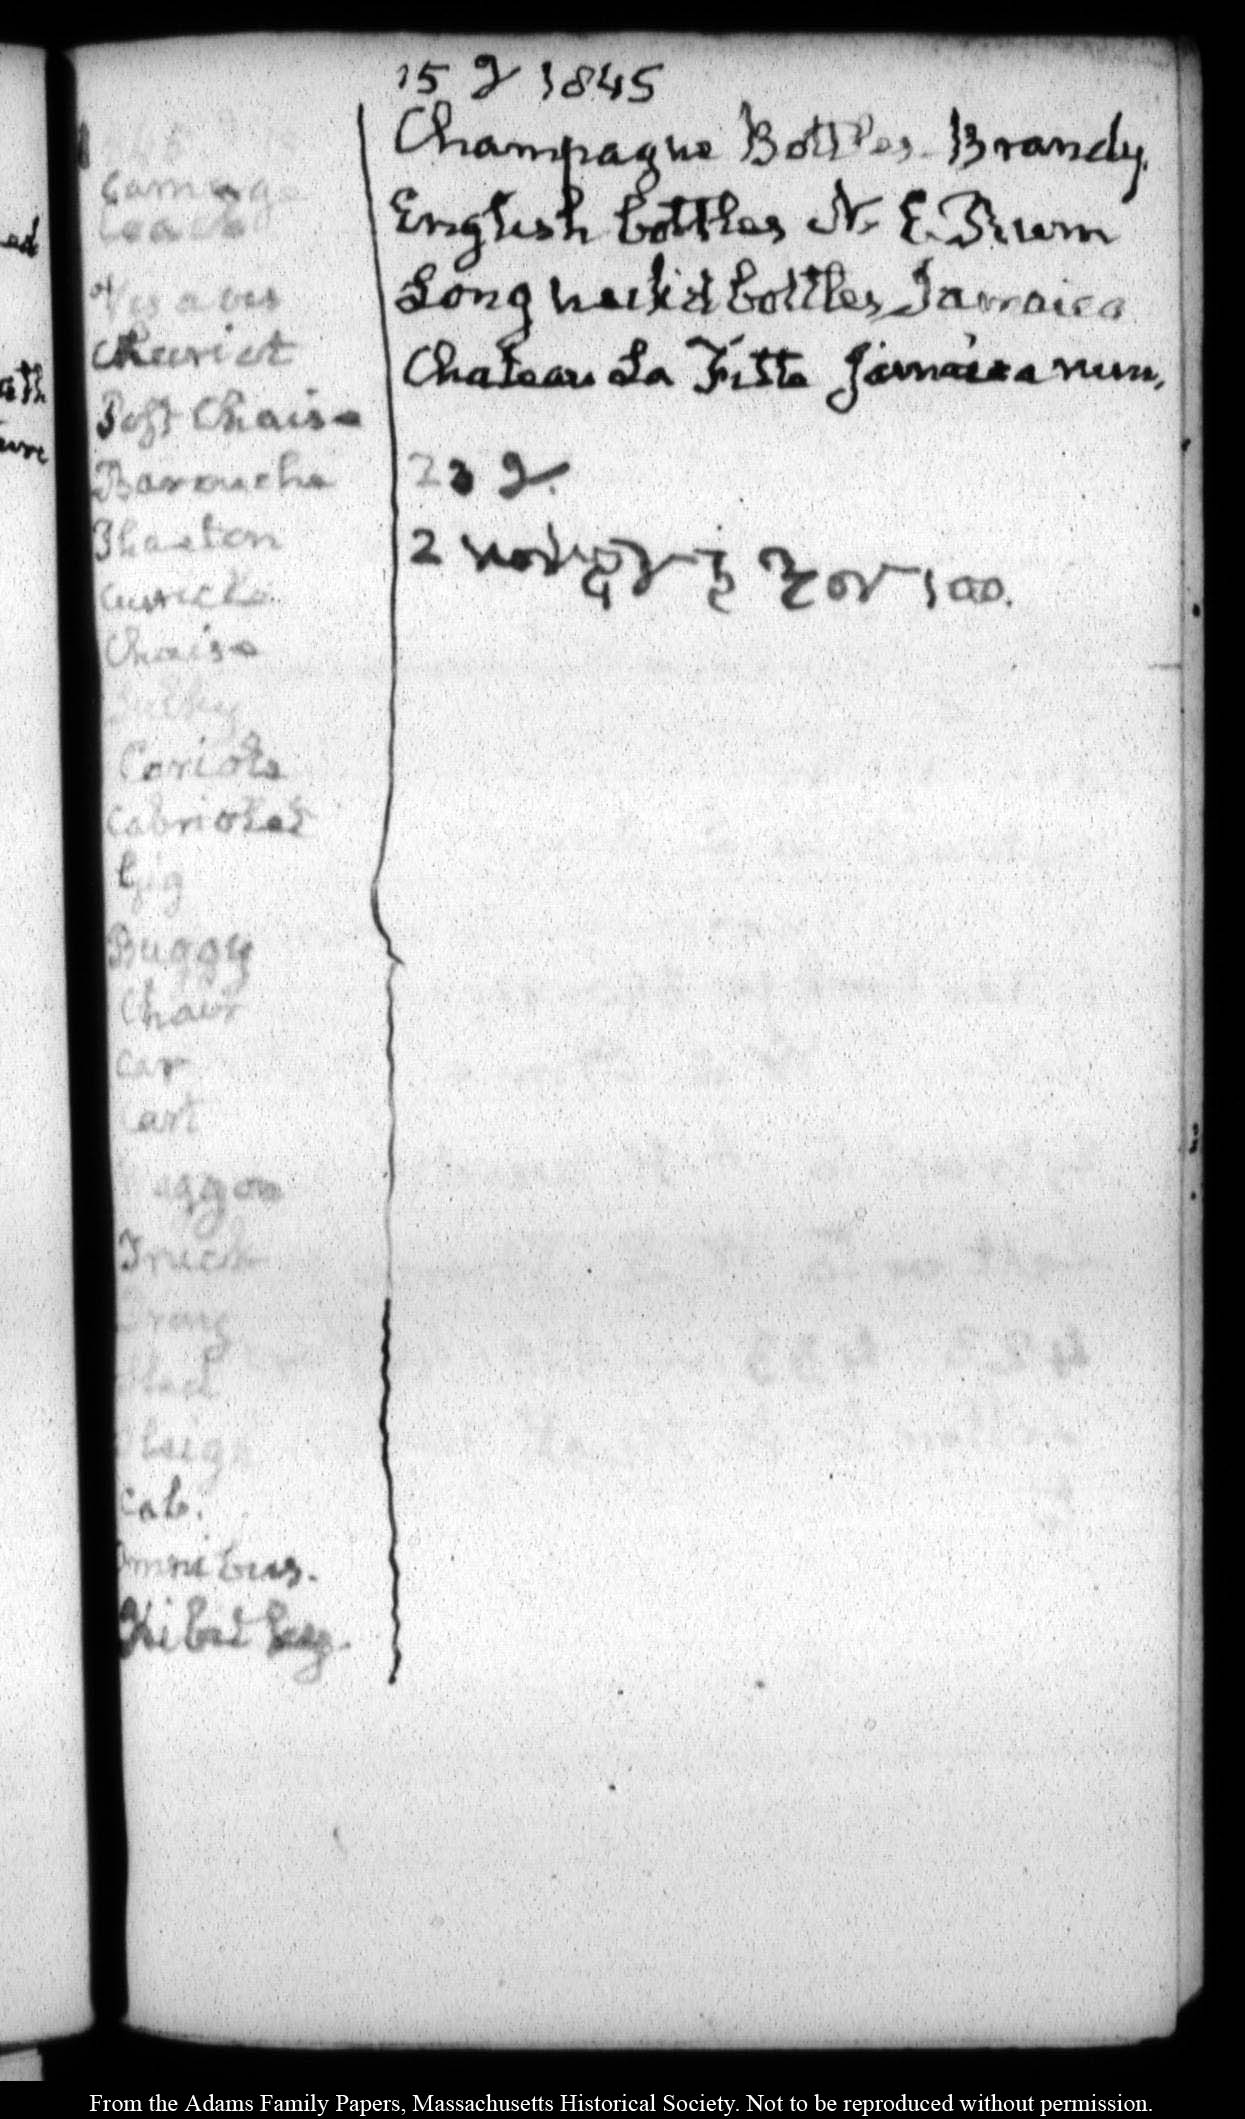 15 J 1845
Champagne Bottles. Brandy.
English bottles N. E. Rum
Long neck'd bottles, Jamaica
Chateau La Fitte Jamaica rum,
23 J.
2 100.
Carriage
Coach
Vis a vis
Chariot
Post Chaise
Barouche
Phaeton
Curricle
Chaise
Sulky
Cariole
Cabriolet
Gig
Buggy
Chair
Car
Cart
Waggon
Truck
Dray
Sled
Sleigh
Cab.
Omnibus.
ed
ath
ure
From the Adams Family Papers, Massachusetts Historical Society. Not to be reproduced without permission.